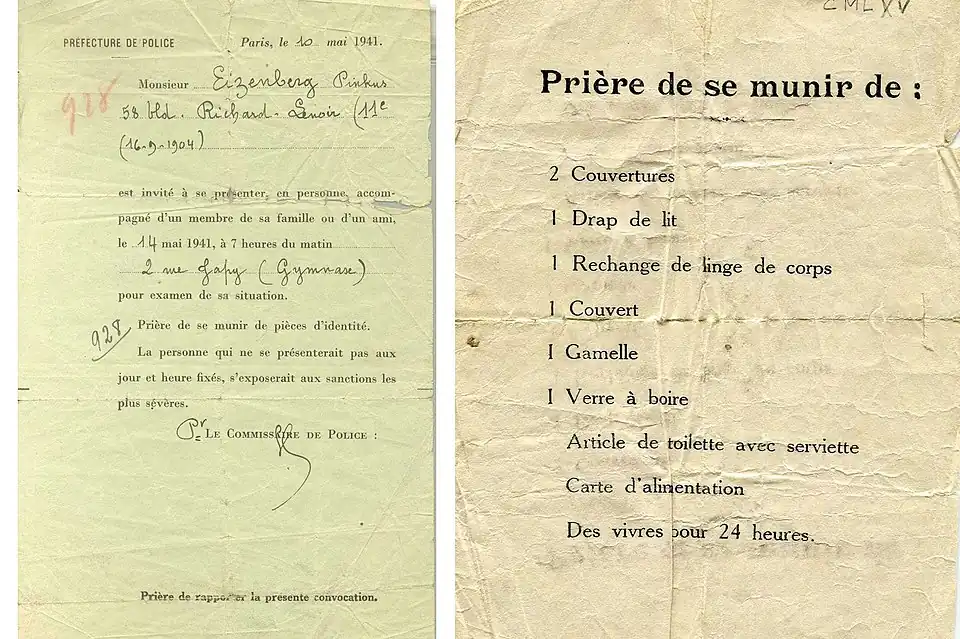 PRÉFECTURE DE POLICE
Paris, le 10 mai 1941.
Monsieur Eizenberg Pinkus
928
58 bld. Richard-Lenoir (11e
(16-9-1904)
est invité à se présenter, en personne, accom-
pagné d'un membre de sa famille ou d'un ami,
le 14 mai 1941, à 7 heures du matin
2 rue Japy (Gymnase)
pour examen de sa situation.
928
Prière de se munir de pièces d'identité.
La personne qui ne se présenterait pas aux
jour et heure fixés, s'exposerait aux sanctions les
plus sévères.
Pr LE COMMISSAIRE DE POLICE :
Prière de rapporter la présente convocation.
CMLXV
Prière de se munir de :
2 Couvertures
1 Drap de lit
1 Rechange de linge de corps
1 Couvert
1 Gamelle
1 Verre à boire
Article de toilette avec serviette
Carte d'alimentation
Des vivres pour 24 heures.